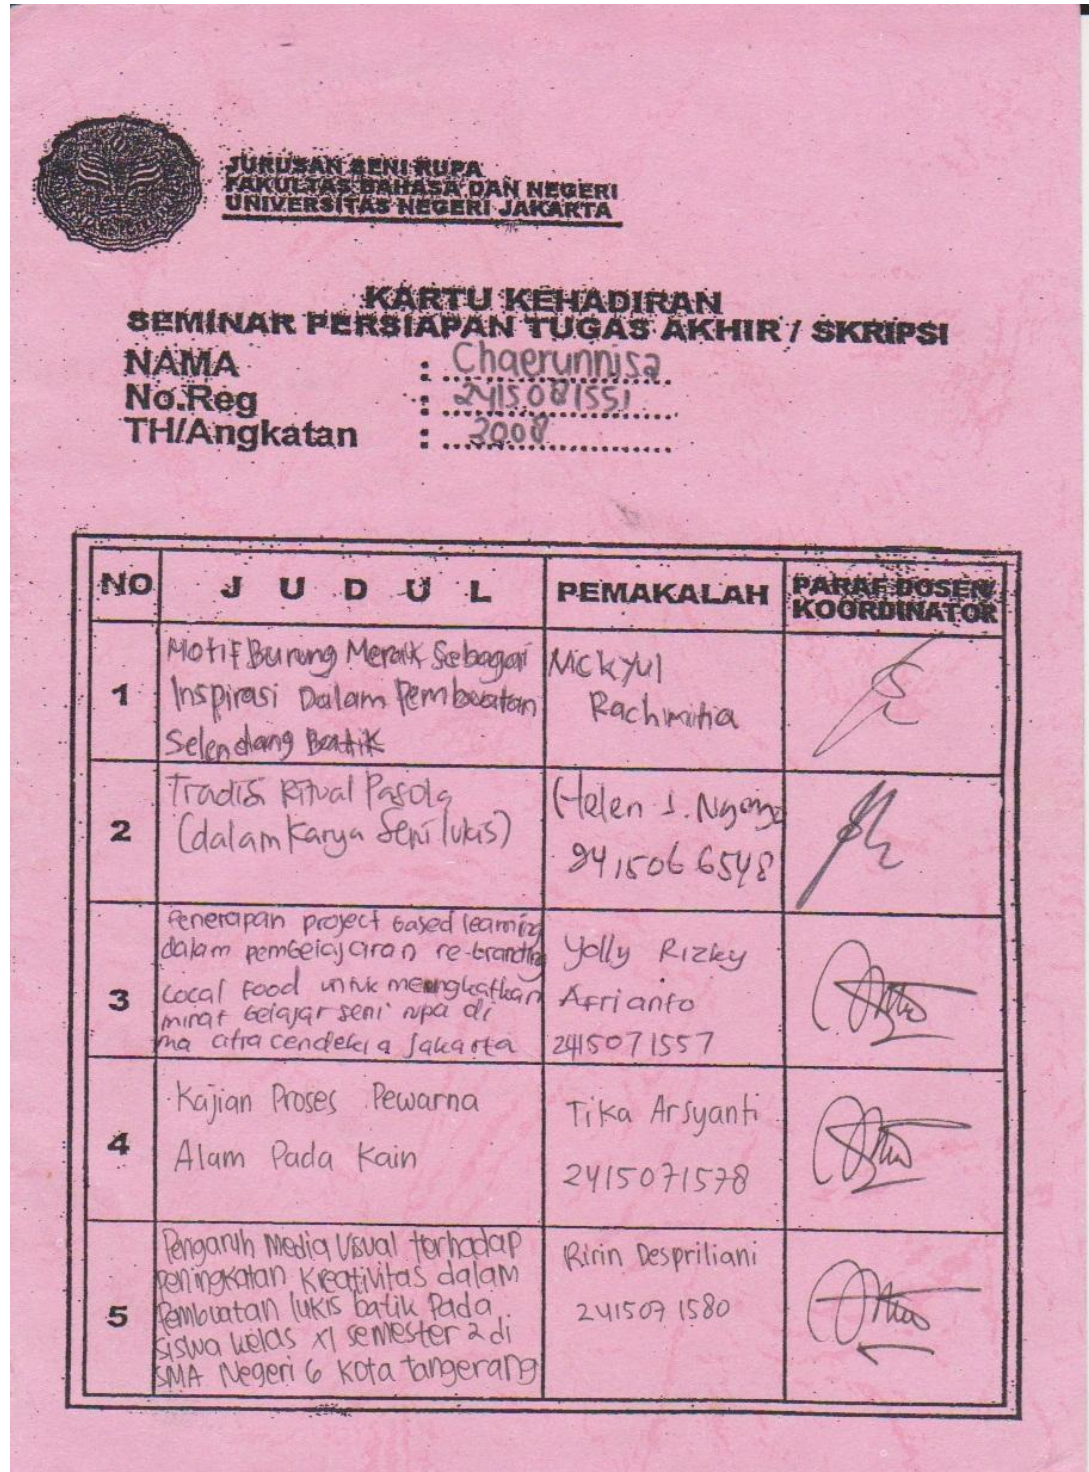 JURUSAN SENI RUPA
FAKULTAS BAHASA DAN NEGERI
UNIVERSITAS NEGERI JAKARTA
KARTU KEHADIRAN
SEMINAR PERSIAPAN TUGAS AKHIR / SKRIPSI
NAMA : Chaerunnisa
No.Reg : 2415081551
TH/Angkatan : 2008
NO J U D U L PEMAKALAH PARAF DOSEN/
KOORDINATOR
1
Motif Burung Merak Sebagai
Inspirasi Dalam Pembuatan
Selendang Batik
Nickyul
Rachmitia
2
Tradisi Ritual Pasola
(dalam Karya Seni lukis)
Helen J.
2415066548
3
Penerapan project based learning
dalam pembelajaran re-branding
Local Food untuk meningkatkan
minat belajar seni rupa di
ma citra cendekia Jakarta
Yolly Rizky
Afrianto
2415071557
4
Kajian Proses Pewarna
Alam Pada Kain
Tika Arsyanti
2415071578
5
Pengaruh Media Visual terhadap
peningkatan Kreativitas dalam
Pembuatan lukis batik Pada
siswa kelas XI semester 2 di
SMA Negeri 6 Kota tangerang
Ririn Despriliani
2415071580